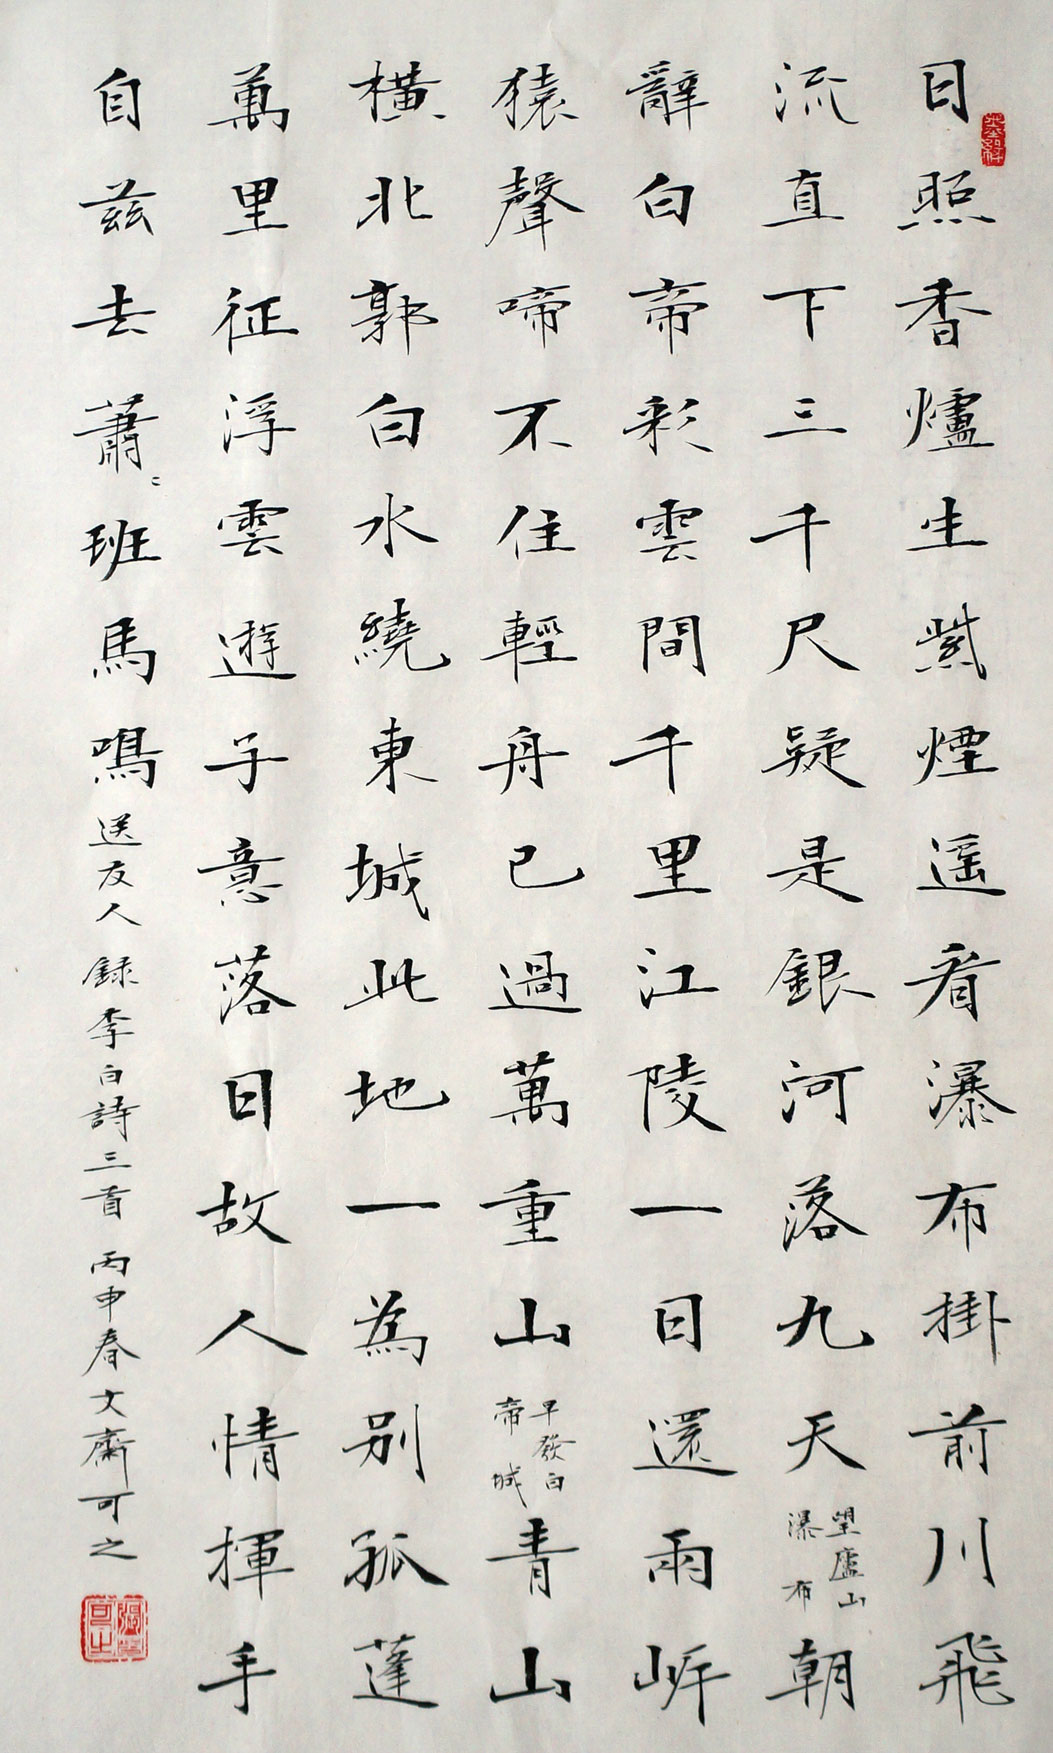 日照香爐生紫煙遥看瀑布掛前川飛
流直下三千尺疑是銀河落九天
望廬山
瀑布
朝
辭白帝彩雲間千里江陵一日還兩岍
猿聲啼不住輕舟已過萬重山
早發白
帝城
青山
橫北郭白水繞東城此地一為別孤蓬
萬里征浮雲遊子意落日故人情揮手
自茲去蕭〻班馬鳴
送友人 録李白詩三首 丙申春文齋可之